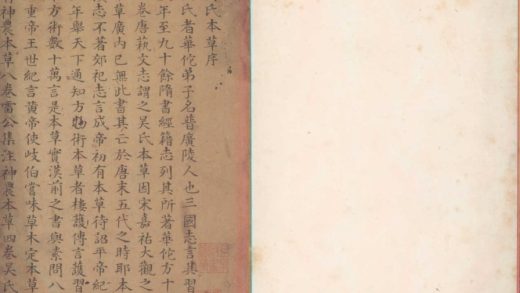 氏本草序
氏者華佗弟子名普廣陵人也三國志言其習
年至九十餘隋書經籍志列其所著華佗方十
卷唐萟文志謂之吳氏本草因宋嘉祐大觀之
草廣內已無此書其亡於唐末五代之時耶本
志不著郊祀志言成帝初有本草待詔平帝紀
年舉天下通知方術本草者樓護傳言護習
方術數十萬言是本草實漢前之書與素問八
重帝王世紀言黃帝使歧伯嘗味草木定本草
神農本草八卷雷公集注神農本草四卷吳氏